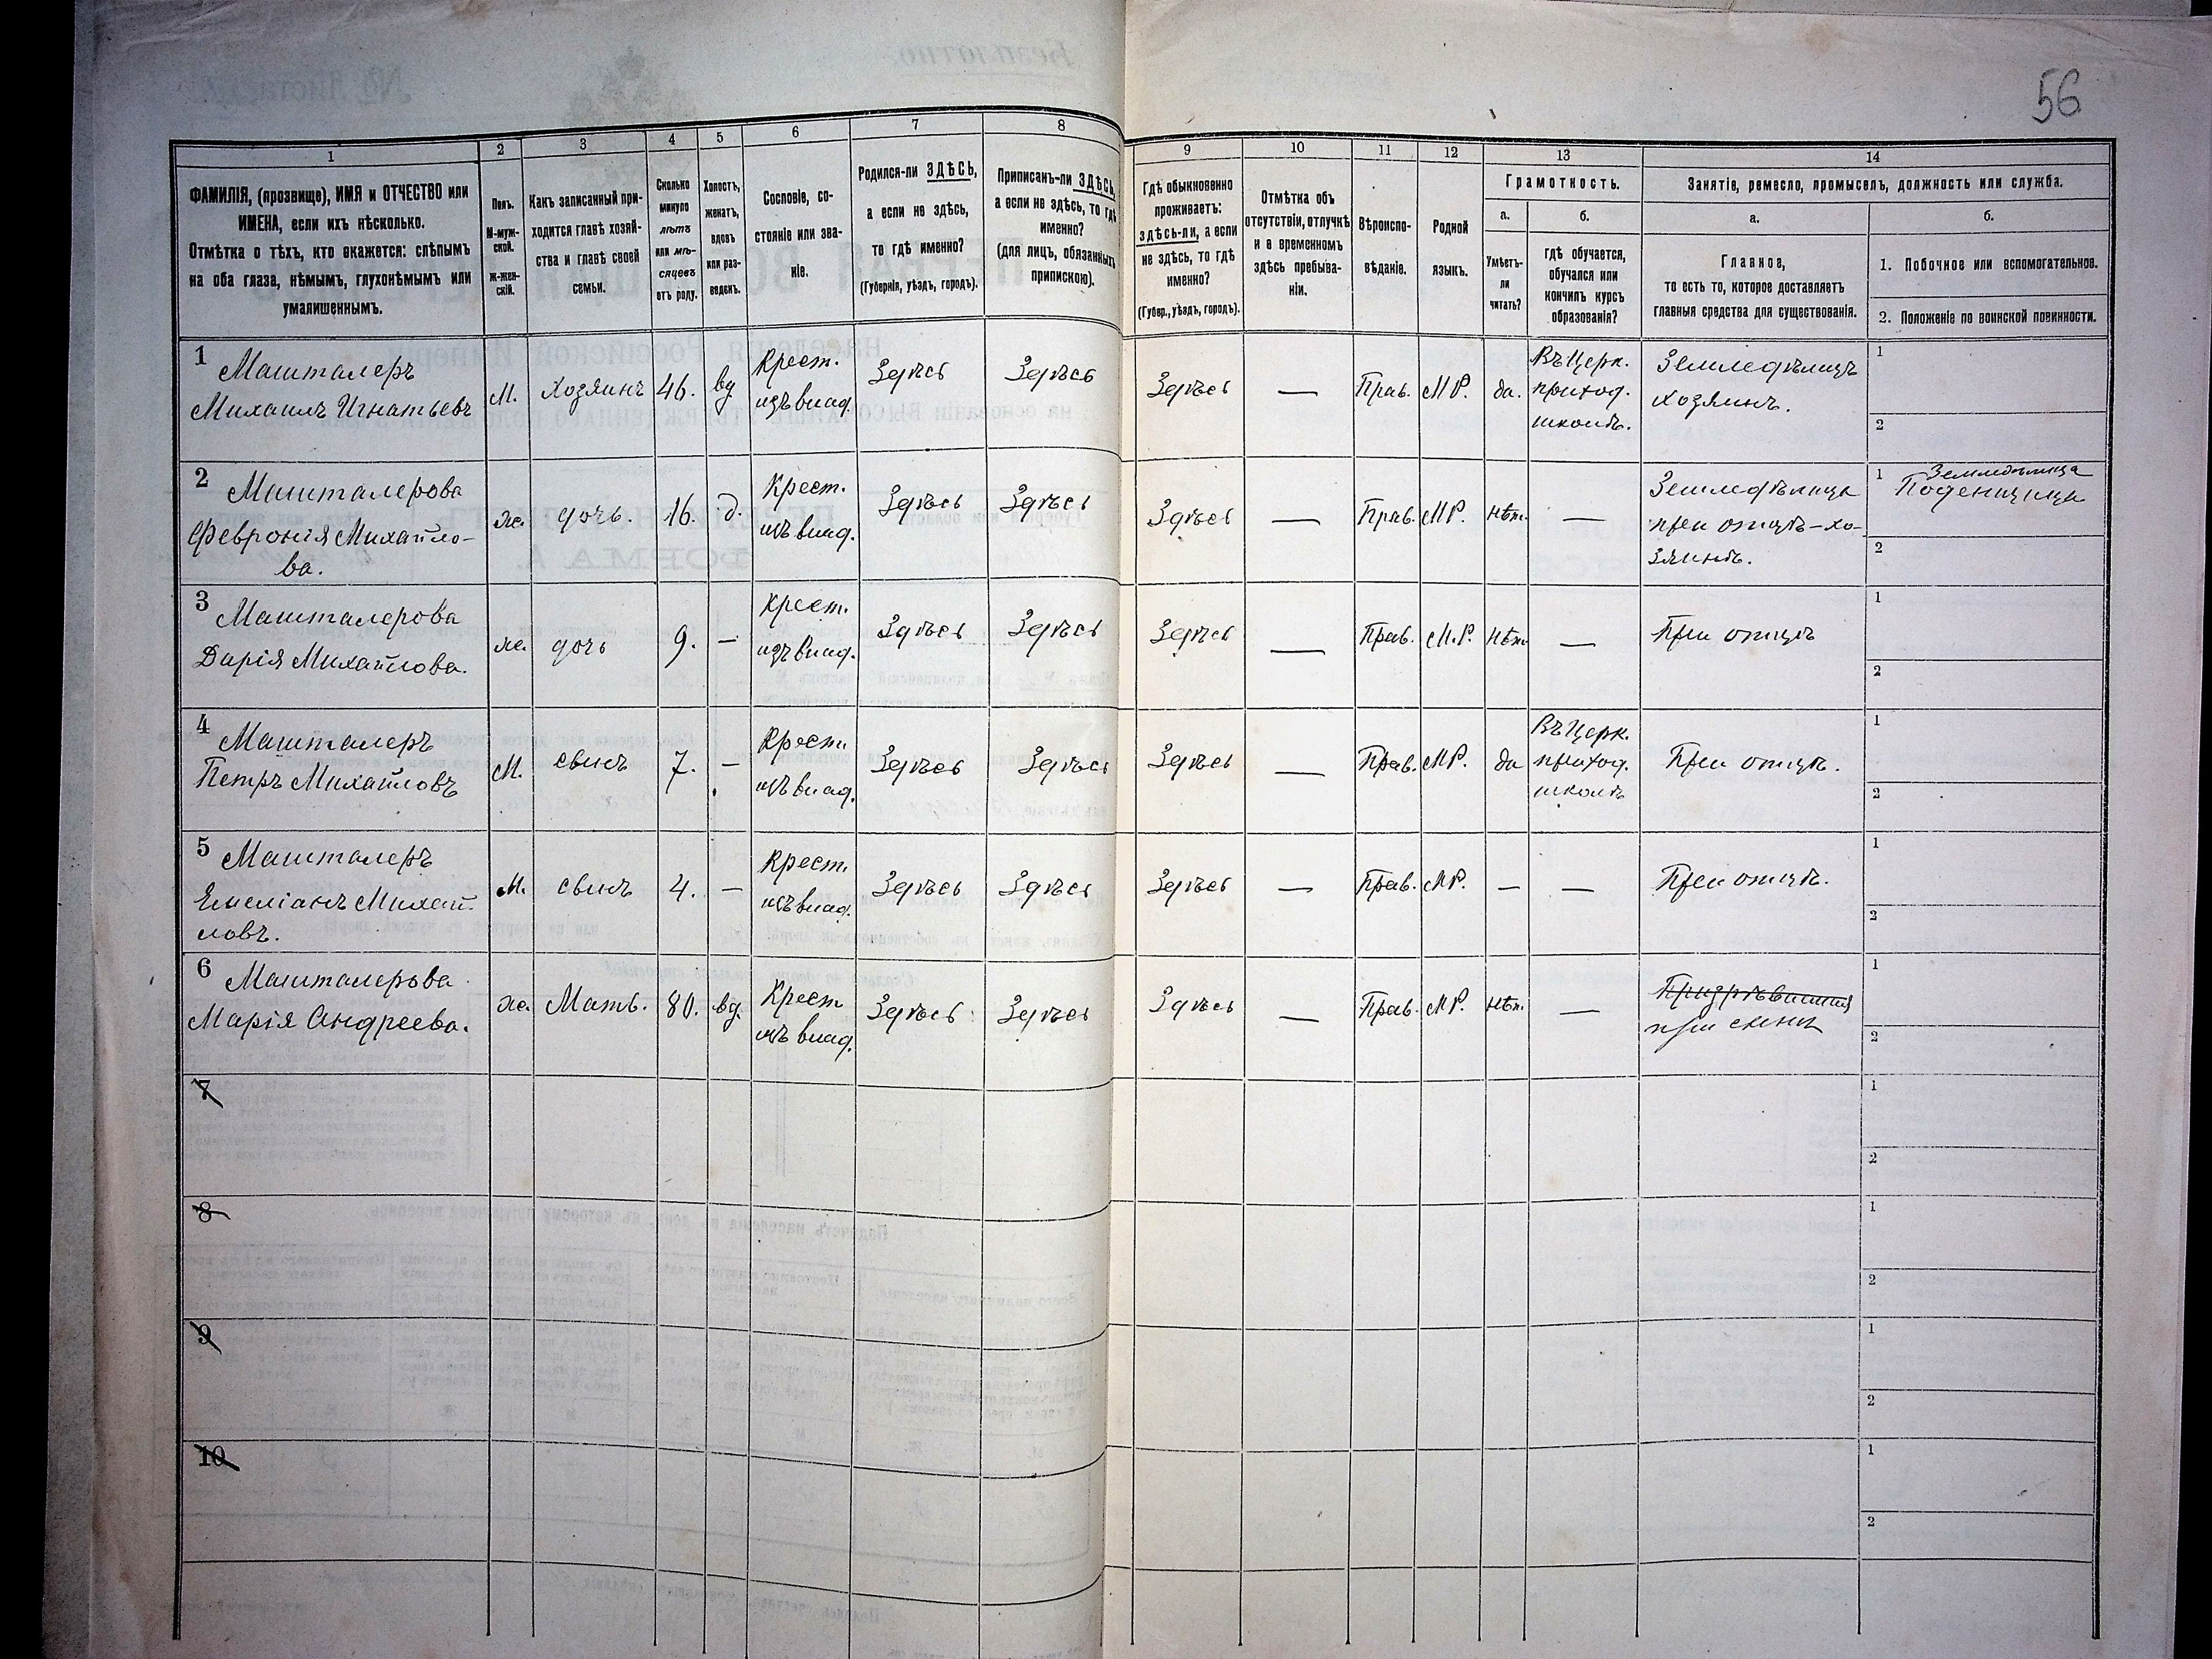 56
1
2
3
4
5
6
7
8
9
10
11
12
13
14
ФАМИЛІЯ, (прозвище), ИМЯ и ОТЧЕСТВО или
ИМЕНА, если ихъ нѣсколько.
Отмѣтка о тѣхъ, кто окажется: слѣпымъ
на оба глаза, нѣмымъ, глухонѣмымъ или
умалишеннымъ.
Полъ.
М-муж-
ской.
Ж-жен-
скій.
Какъ записанный при-
ходится главѣ хозяй-
ства и главѣ своей
семьи.
Сколько
минуло
лѣтъ
или мѣ-
сяцевъ
отъ роду.
Холостъ,
женатъ,
вдовъ
или раз-
веденъ.
Сословіе, со-
стояніе или зва-
ніе.
Родился-ли ЗДѢСЬ,
а если не здѣсь,
то гдѣ именно?
(Губернія, уѣздъ, городъ).
Приписанъ-ли ЗДѢСЬ,
а если не здѣсь, то гдѣ
именно?
(для лицъ, обязанныхъ
припискою).
Гдѣ обыкновенно
проживаетъ:
здѣсь-ли, а если
не здѣсь, то гдѣ
именно?
(Губер., уѣздъ, городъ).
Отмѣтка объ
отсутствіи, отлучкѣ
и о временномъ
здѣсь пребыва-
ніи.
Вѣроиспо-
вѣданіе.
Родной
языкъ.
Грамотность.
а.
Умѣетъ-
ли
читать?
б.
гдѣ обучается,
обучался или
кончилъ курсъ
образованія?
Занятіе, ремесло, промыселъ, должность или служба.
а.
Главное,
то есть то, которое доставляетъ
главныя средства для существованія.
б.
1. Побочное или вспомогательное.
2. Положеніе по воинской повинности.
1
Машталеръ
Михаилъ Игнатьевъ
М.
Хозяинъ
46.
вд.
Крест.
изъ влад.
Здѣсь
Здѣсь
Здѣсь
—
Прав.
М Р.
да.
Въ Церк.
приход.
школѣ.
Земледѣлецъ
хозяинъ.
1
2
2
Машталерова
Февронія Михайло-
ва.
ж.
дочь.
16.
д.
Крест.
изъ влад.
Здѣсь
Здѣсь
Здѣсь
—
Прав.
М Р.
нѣт.
—
Земледѣлица
при отцѣ-хо-
зяинѣ.
1
Земледѣлица
Поденщица
2
3
Машталерова
Дарія Михайлова.
ж.
дочь
9.
—
Крест.
изъ влад.
Здѣсь
Здѣсь
Здѣсь
—
Прав.
М.Р.
нѣт.
—
При отцѣ
1
2
4
Машталеръ
Петръ Михайловъ
М.
сынъ
7.
—
Крест.
изъ влад.
Здѣсь
Здѣсь
Здѣсь
—
Прав.
М Р.
да
Въ Церк.
приход.
школѣ
При отцѣ.
1
2
5
Машталеръ
Емеліанъ Михай-
ловъ.
М.
сынъ
4.
—
Крест.
изъ влад.
Здѣсь
Здѣсь
Здѣсь
—
Прав.
М Р.
—
—
При отцѣ.
1
2
6
Машталерова
Марія Андреева.
ж.
Мать.
80.
вд.
Крест
изъ влад.
Здѣсь
Здѣсь
Здѣсь
—
Прав.
М Р.
нѣт.
—
при сынѣ
1
2
7
1
2
8
1
2
9
1
2
10
1
2